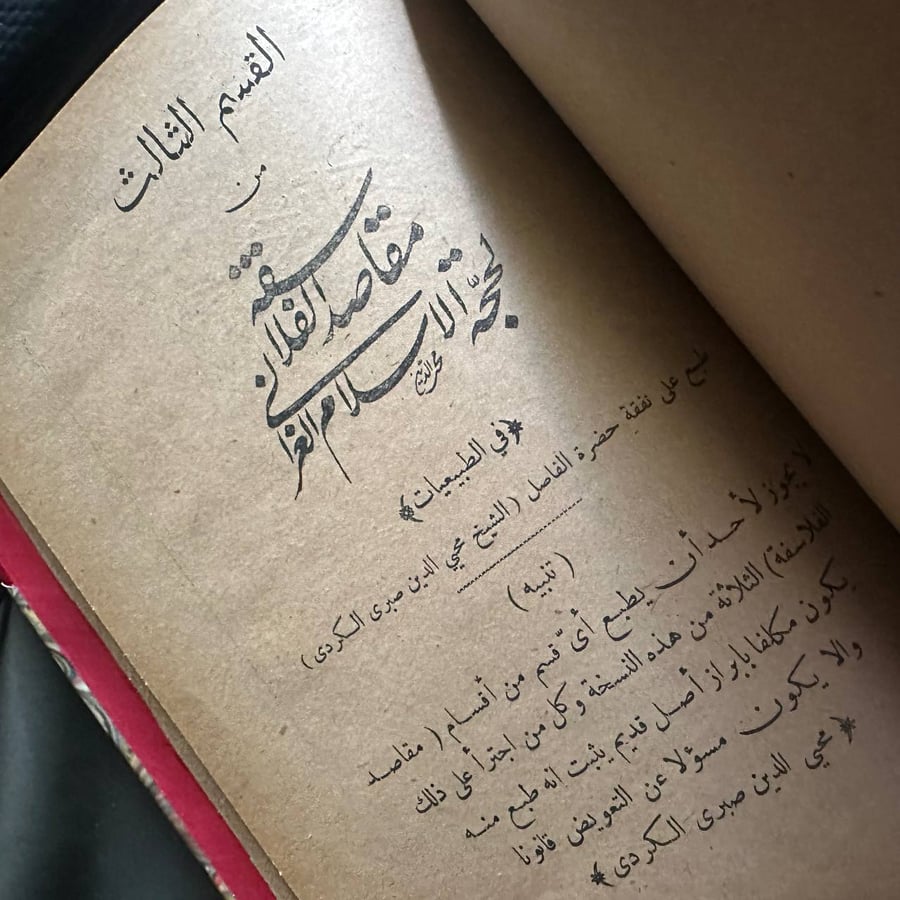 القسم الثالث
من
مقاصد الفلاسفة
لحجة الاسلام الغزالي
﴿في الطبيعيات﴾
طبع على نفقة حضرة الفاضل (الشيخ محيي الدين صبرى الكردى)
(تنبيه)
لا يجوز لأحد أن يطبع أىّ قسم من أقسام ( مقاصد
الفلاسفة) الثلاثة من هذه النسخة وكل من اجترأ على ذلك
يكون مكلفا بابراز أصل قديم يثبت انه طبع منه
والا يكون مسؤلا عن التعويض قانونا
﴿محيي الدين صبرى الكردى﴾